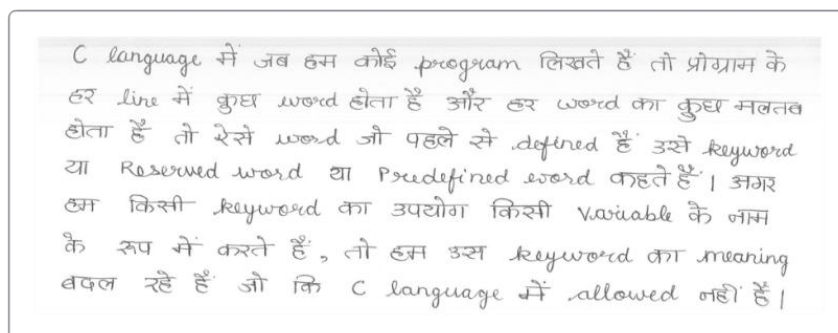 C language में जब हम कोई program लिखते हैं तो प्रोग्राम के
हर line में कुछ word होता है और हर word का कुछ मतलब
होता है तो ऐसे word जो पहले से defined हैं उसे keyword
या Reserved word या Predefined word कहते हैं। अगर
हम किसी keyword का उपयोग किसी variable के नाम
के रूप में करते हैं, तो हम उस keyword का meaning
बदल रहे हैं जो कि C language में allowed नहीं है।